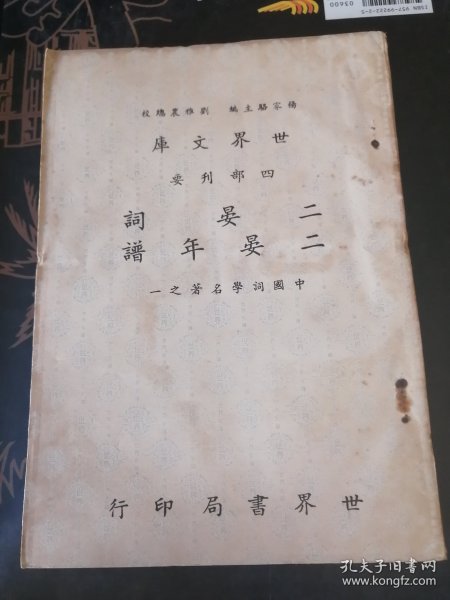 楊家駱主編 劉雅農總校
世界文庫
四部刊要
二晏詞
二晏年譜
中國詞學名著之一
世界書局印行
ISBN 957-99222-2-5
03600
孔夫子旧书网
www.kongfz.com